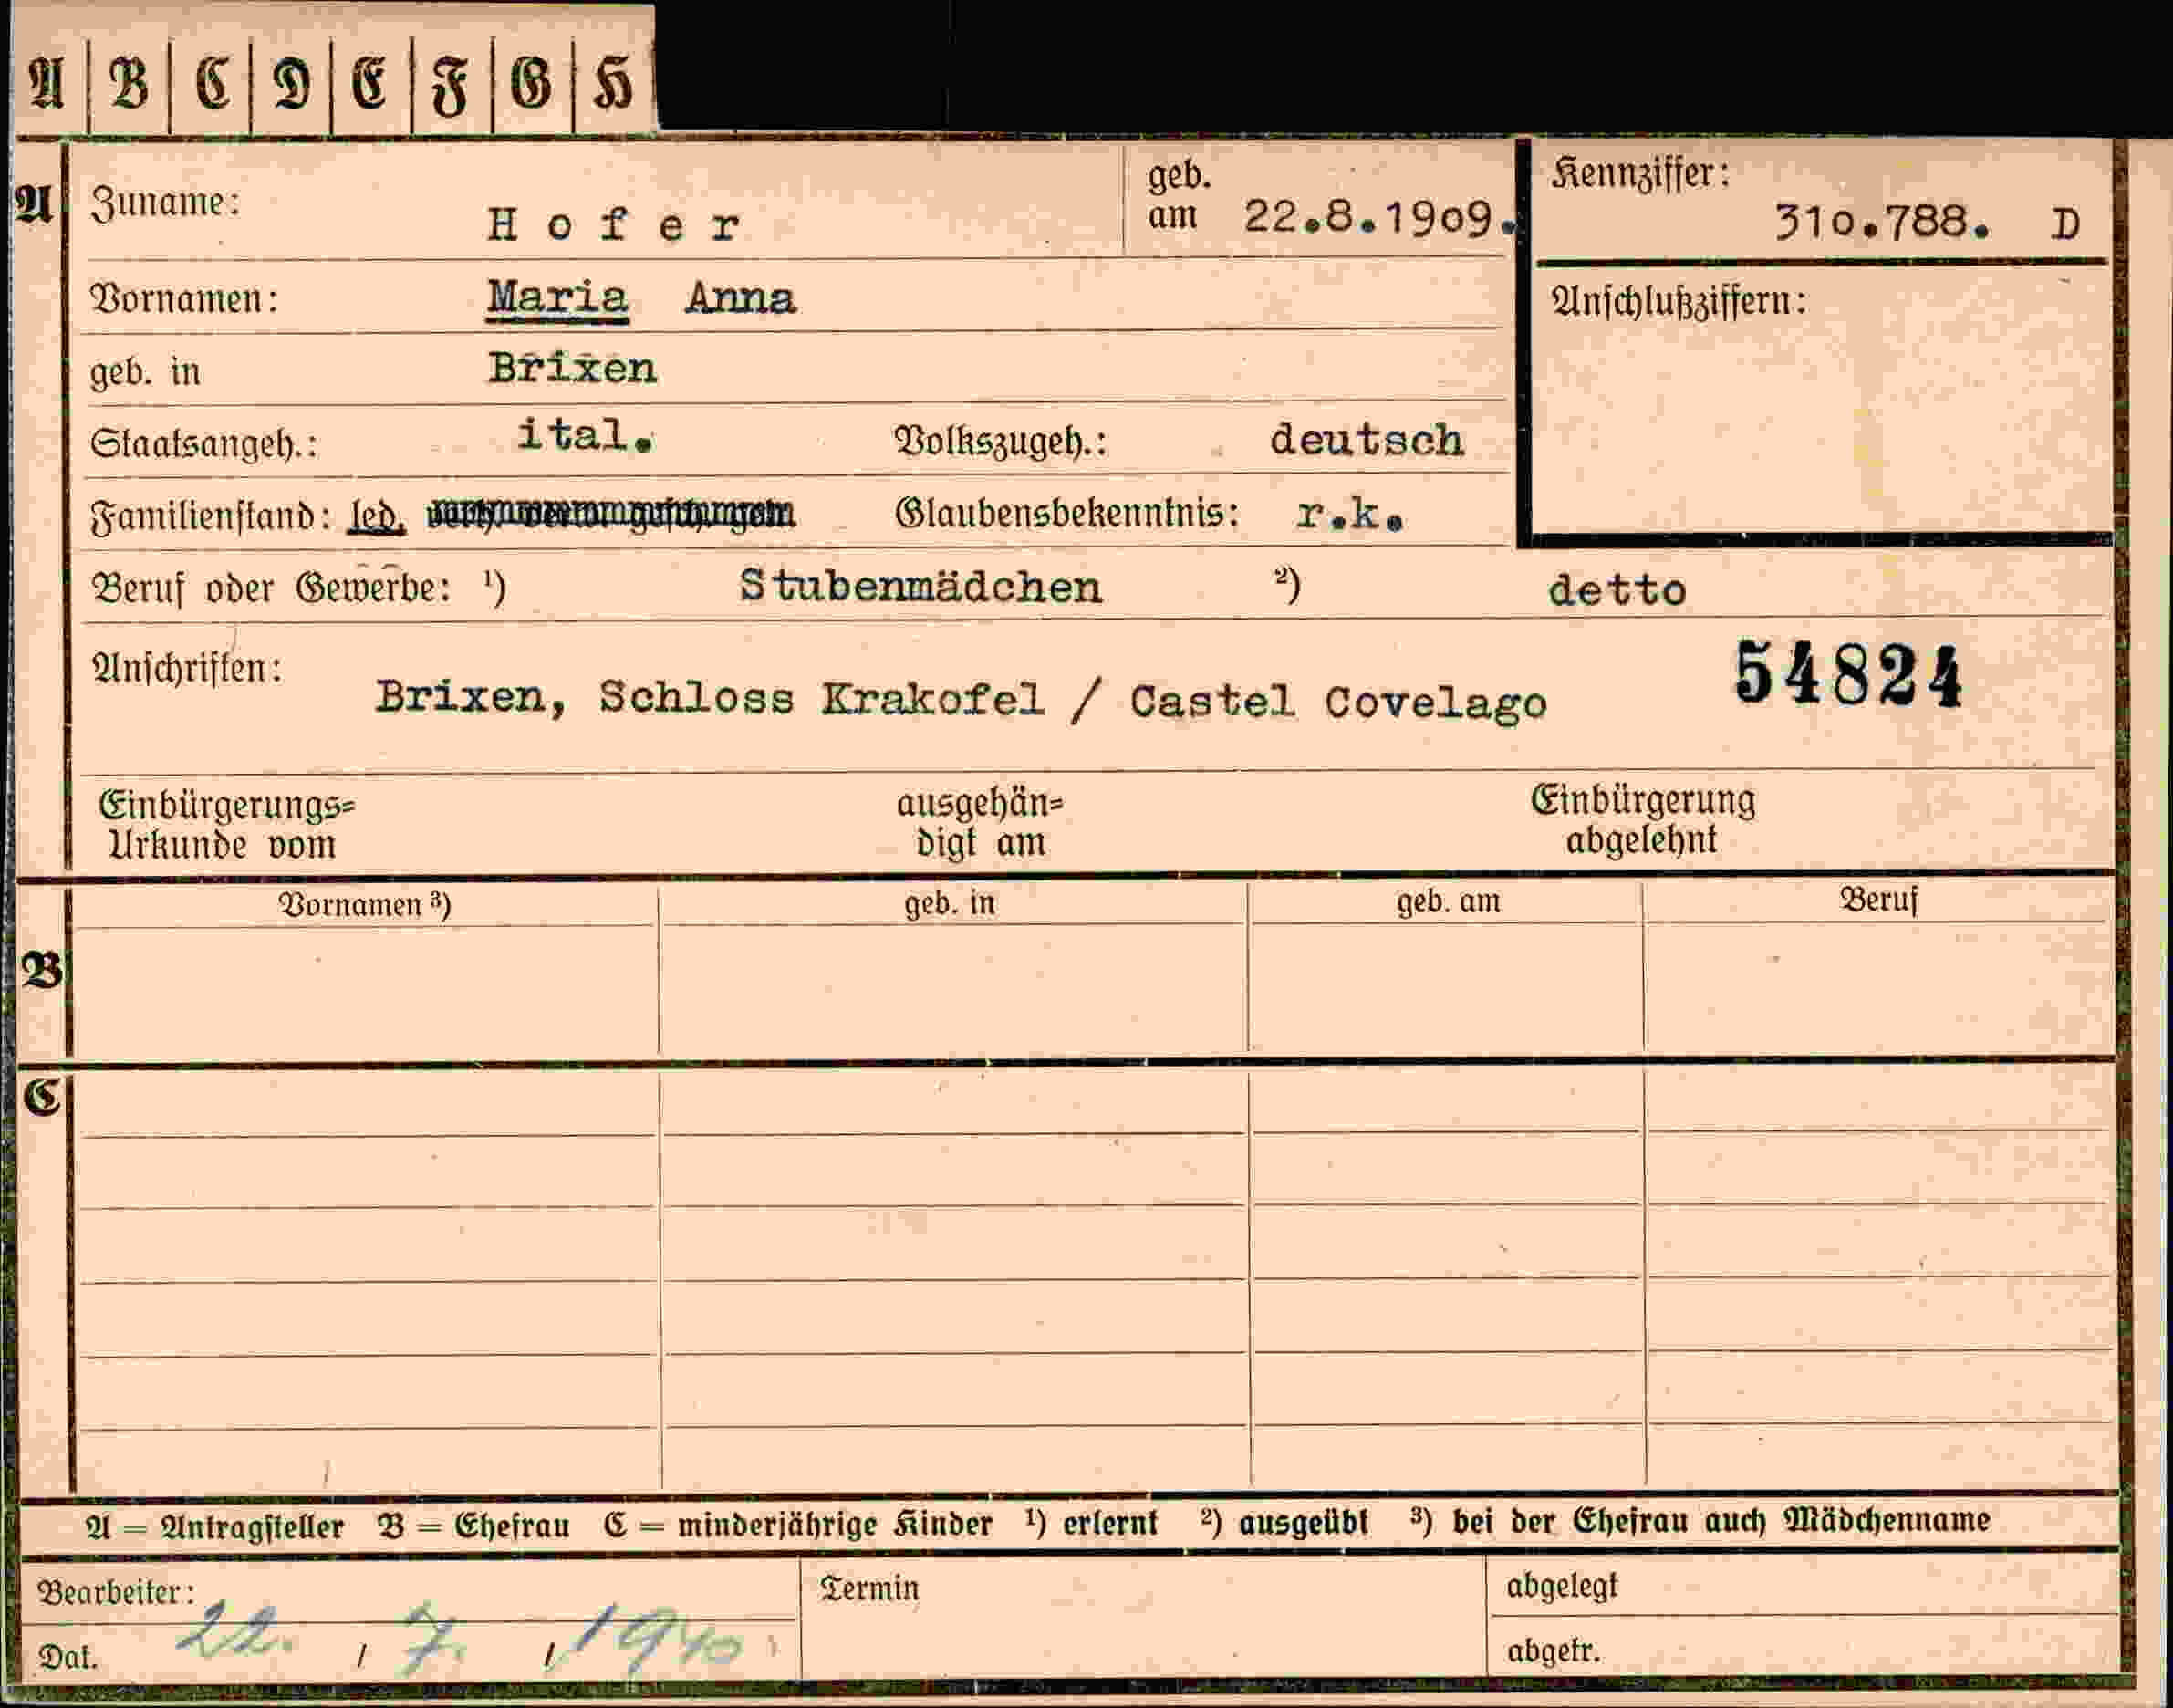 A B C D E F G H
A Zuname: Hofer geb. am 22.8.1909. Kennziffer: 310.788. D
Vornamen: Maria Anna Anschlußziffern:
geb. in Brixen
Staatsangeh.: ital. Volkszugeh.: deutsch
Familienstand: led. Glaubensbekenntnis: r.k.
Beruf oder Gewerbe: ¹) Stubenmädchen ²) detto
Anschriften: Brixen, Schloss Krakofel / Castel Covelago 54824
Einbürgerungs= ausgehän= Einbürgerung
Urkunde vom digt am abgelehnt
Vornamen ³) geb. in geb. am Beruf
B
C
A = Antragsteller B = Ehefrau C = minderjährige Kinder ¹) erlernt ²) ausgeübt ³) bei der Ehefrau auch Mädchenname
Bearbeiter: Termin abgelegt
Dat. 22. / 7. / 1940 abgetr.